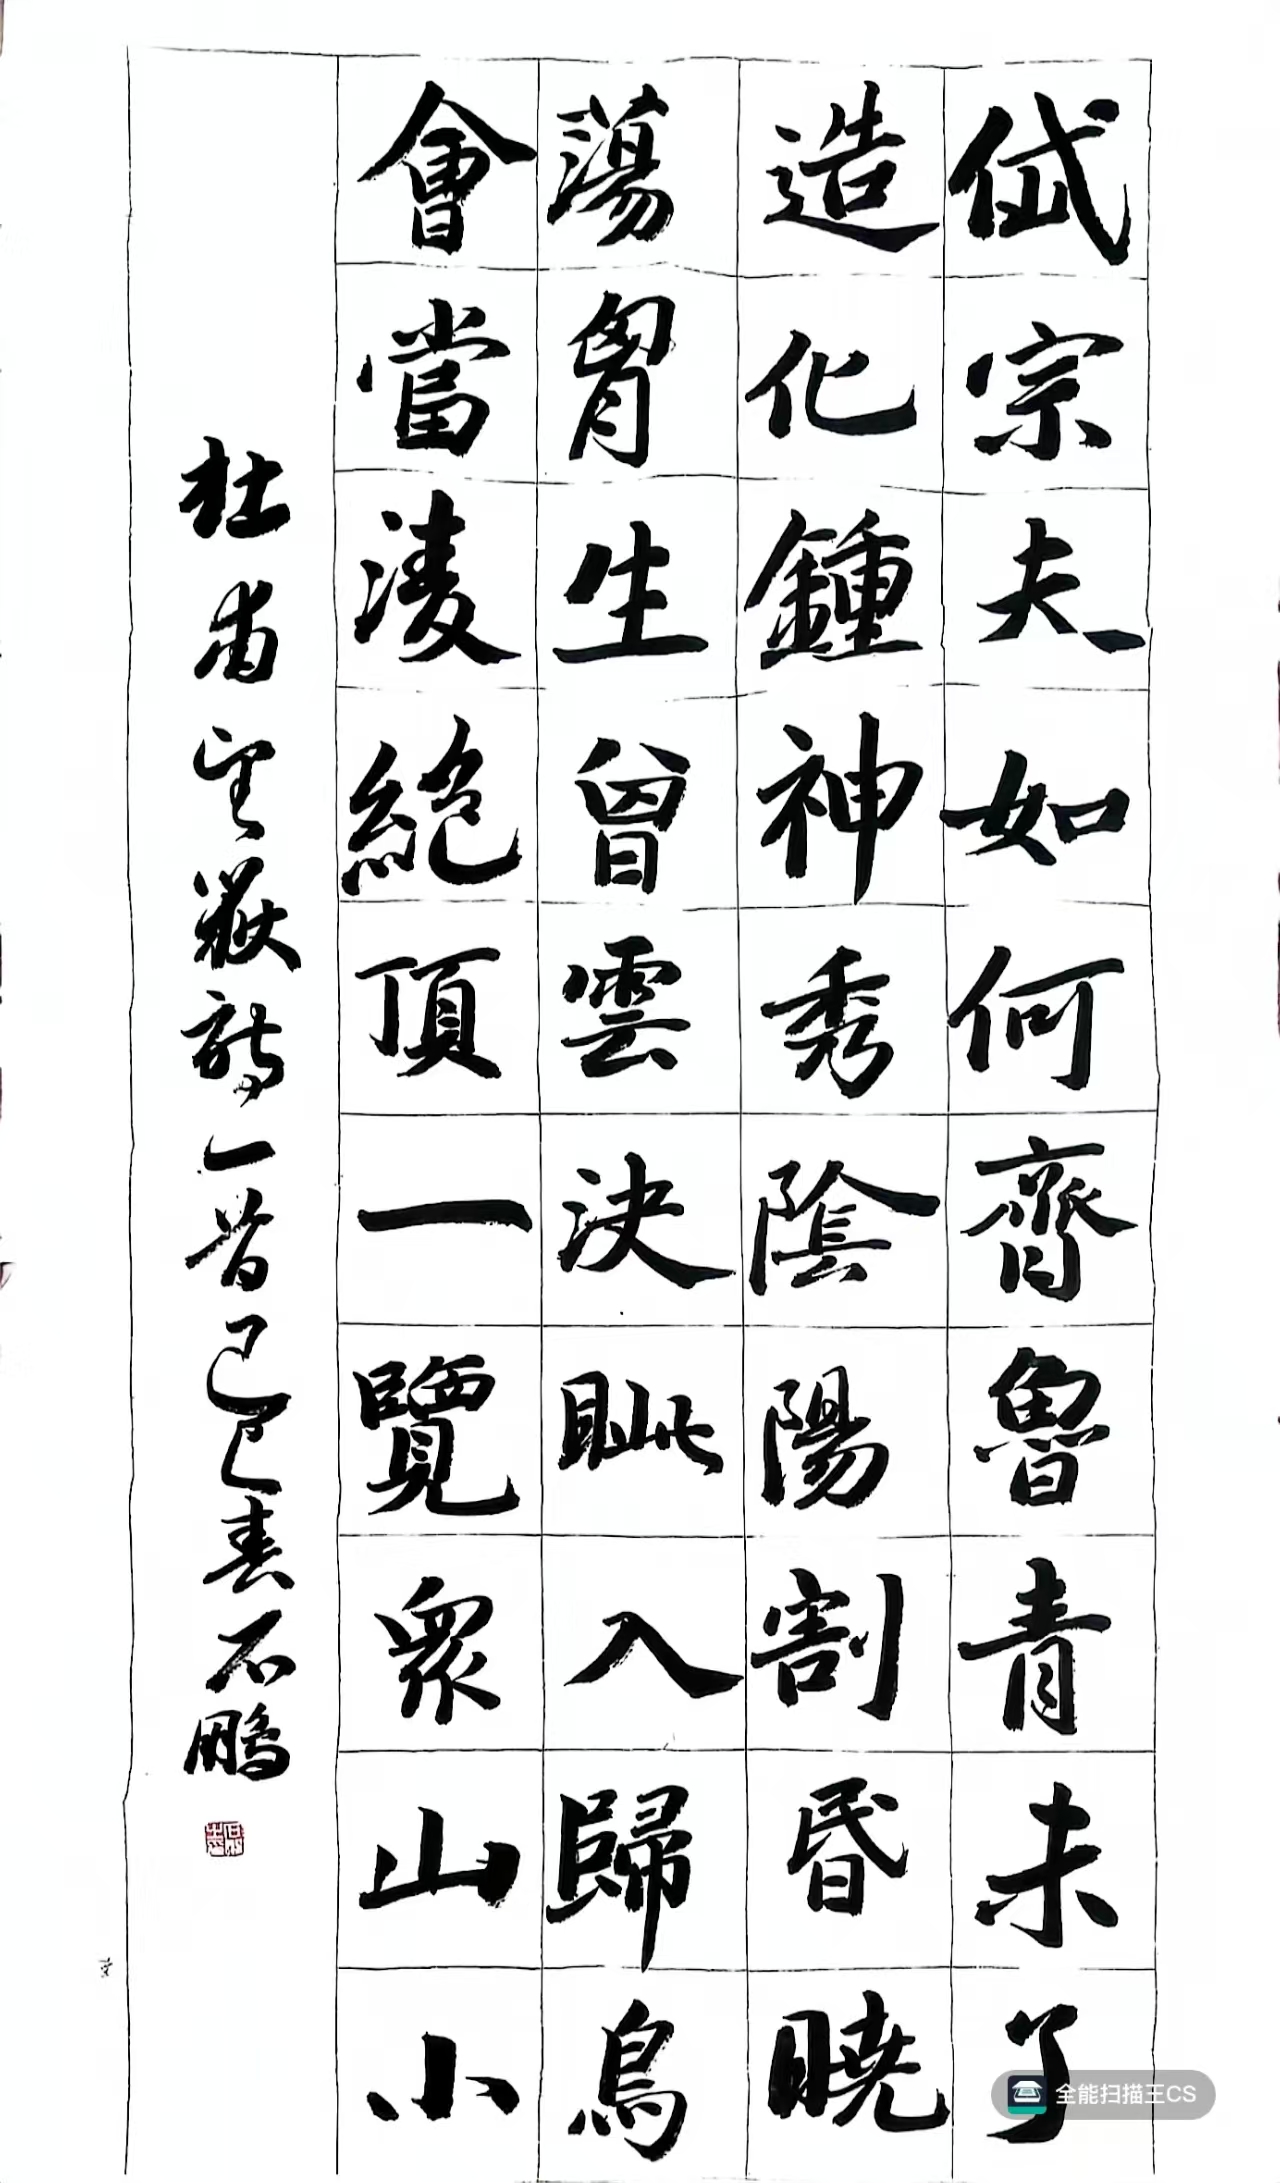 岱宗夫如何齊魯青未了
造化鍾神秀陰陽割昬曉
蕩胷生曾雲決眦入歸鳥
會當淩絶頂一覽衆山小
杜甫望嶽詩一首己巳春石鵬
全能扫描王CS